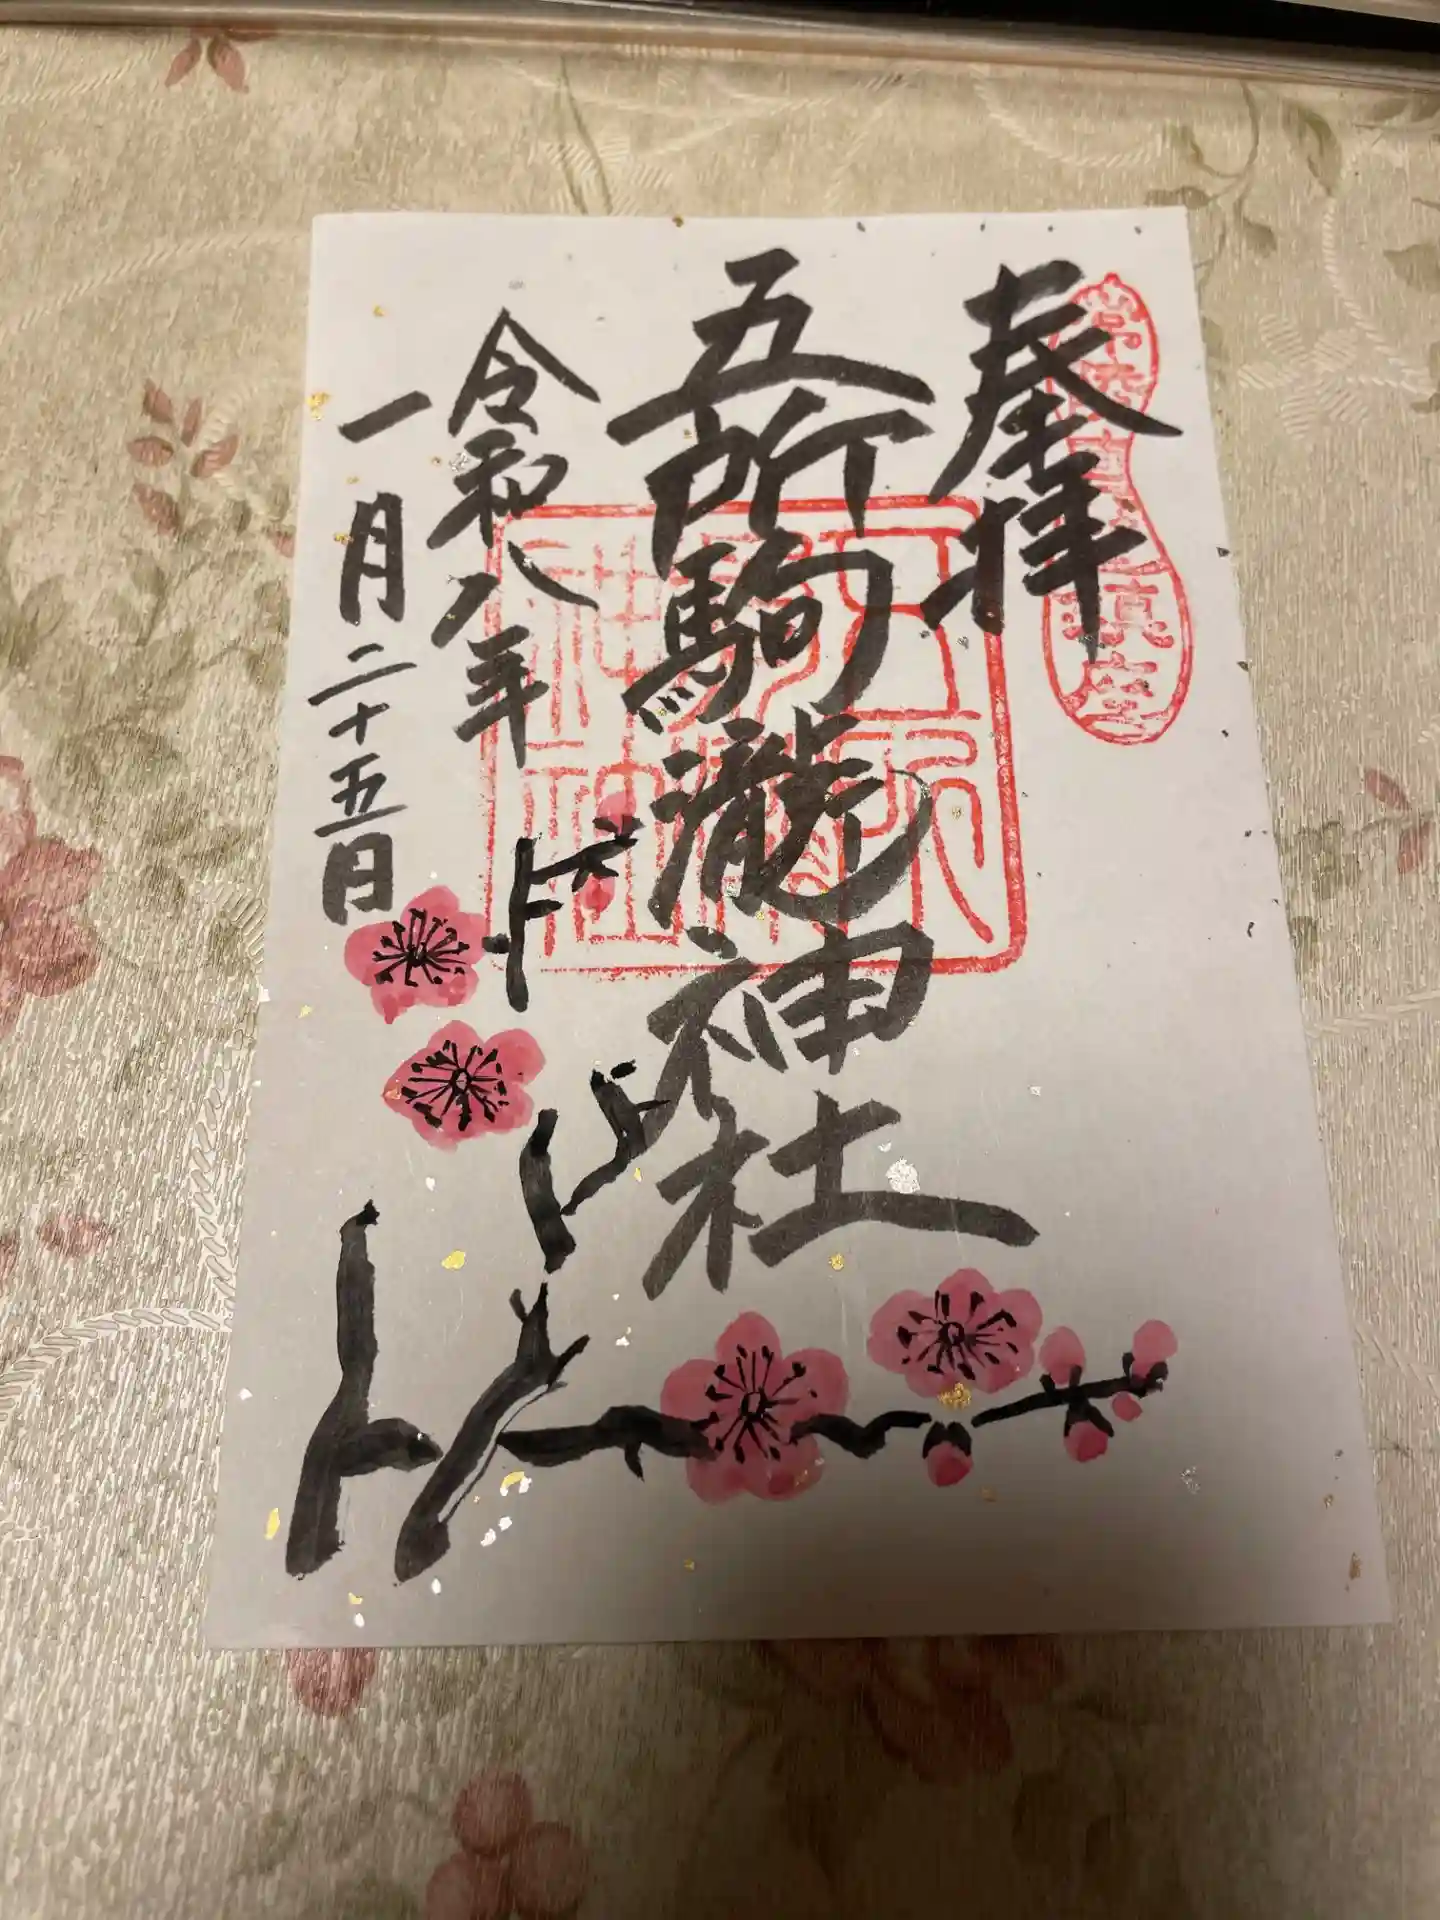 奉拝
五所駒瀧神社
令和八年
一月二十五日
常陸真壁鎮座
五所駒瀧神社